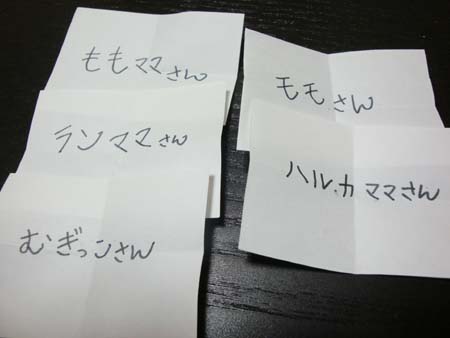 ももママさん
モモさん
ランママさん
ハル.カママさん
むぎっこさん